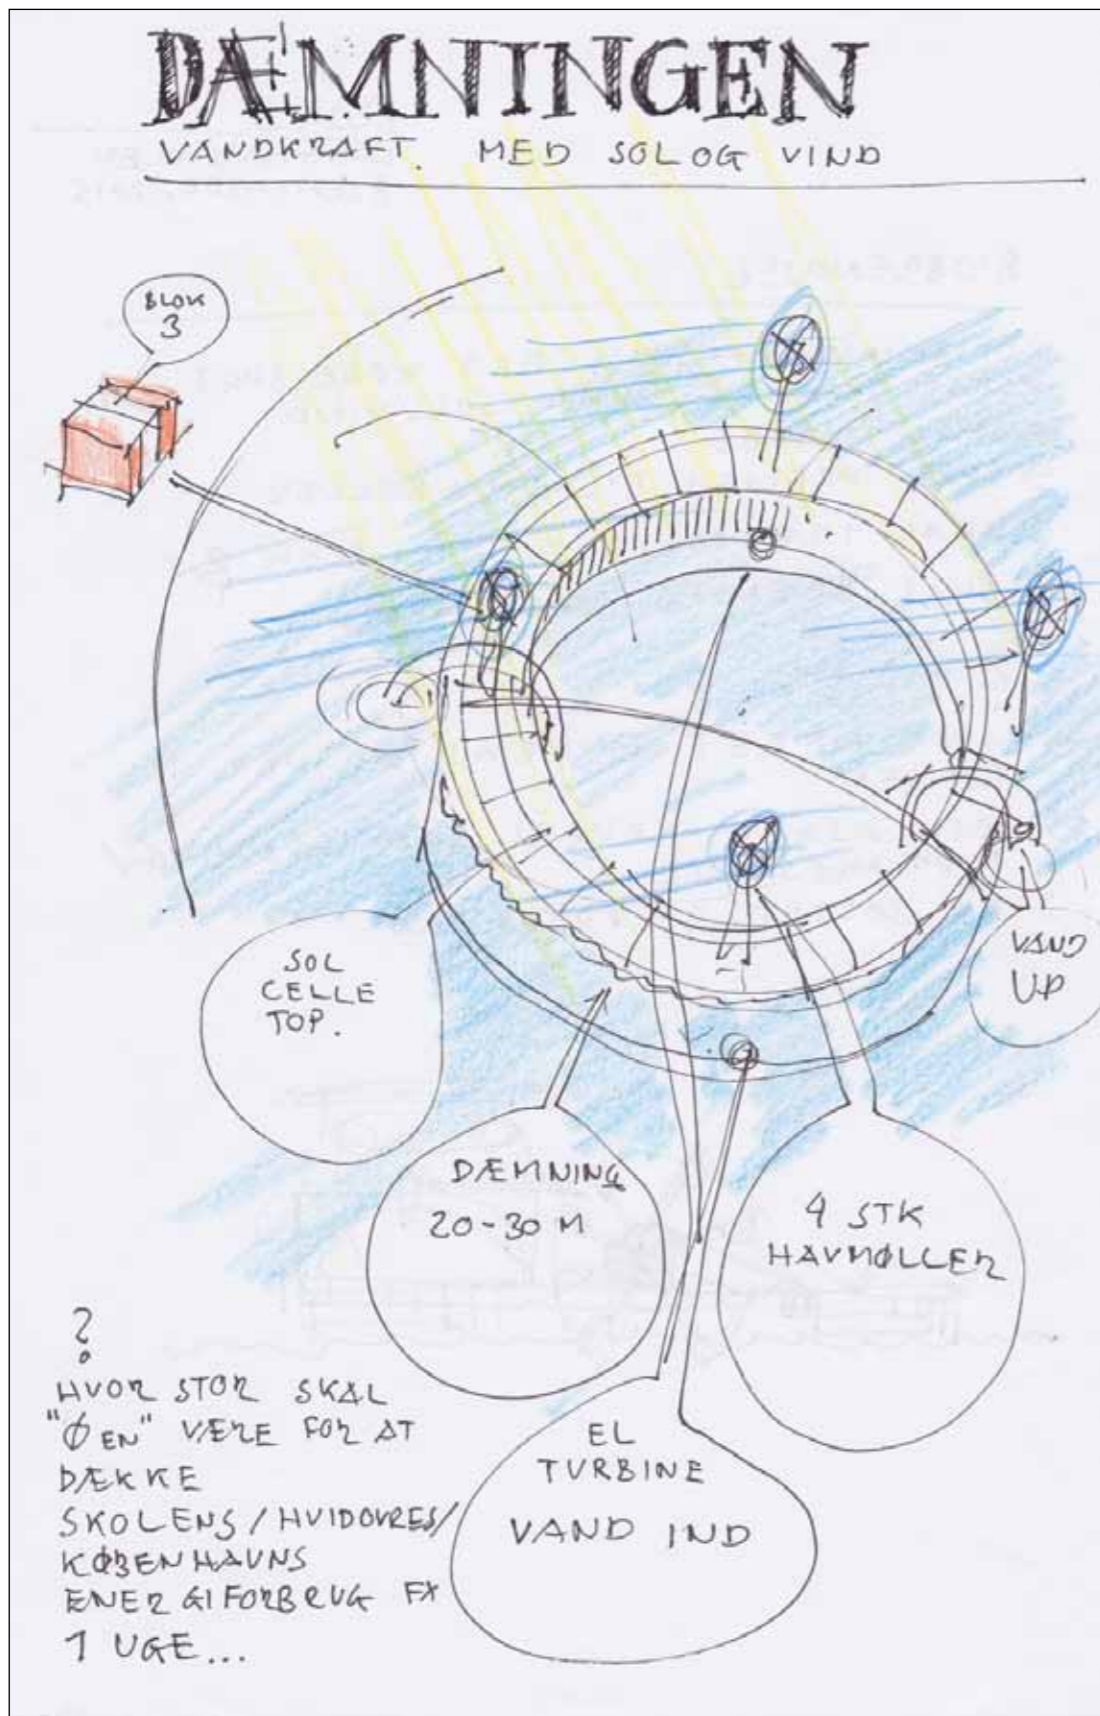 DÆMNINGEN
VANDKRAFT. MED SOL OG VIND
BLOK
3
SOL
CELLE
TOP.
VAND
UD
DÆMNING
20-30 M
4 STK
HAVMØLLER
EL
TURBINE
VAND IND
?
HVOR STOR SKAL
"ØEN" VÆRE FOR AT
DÆKKE
SKOLENS/HVIDOVRES/
KØBENHAVNS
ENERGIFORBRUG FX
1 UGE...